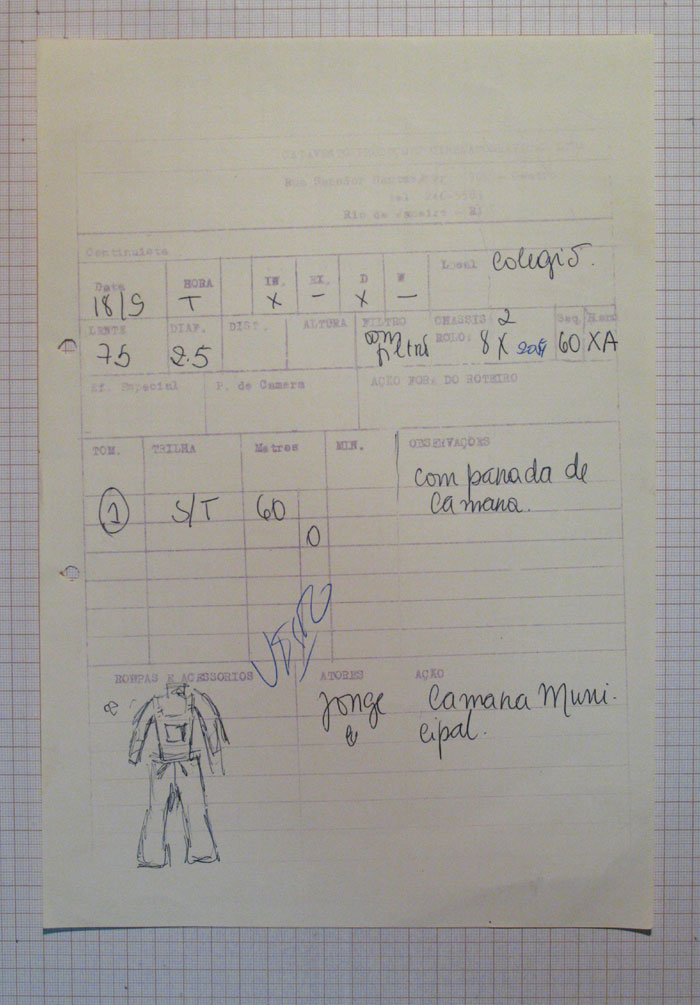 Rio de Janeiro - RJ
Continuista
Data HORA IN. EX. D N Local colegio.
18/9 T X - X -
LENTE DIAF. DIST. ALTURA FILTRO CHASSIS: 2 Seq.
75 2.5 com filtro ROLO: 8 X 60 XA
Ef. Especial P. de Camera AÇÃO FORA DO ROTEIRO
TOM. TRILHA Metros MIN. OBSERVAÇÕES
com panada de
camara.
1 S/T 60
0
ROUPAS E ACESSORIOS ATORES AÇÃO
Jorge Camara Muni-
e cipal.